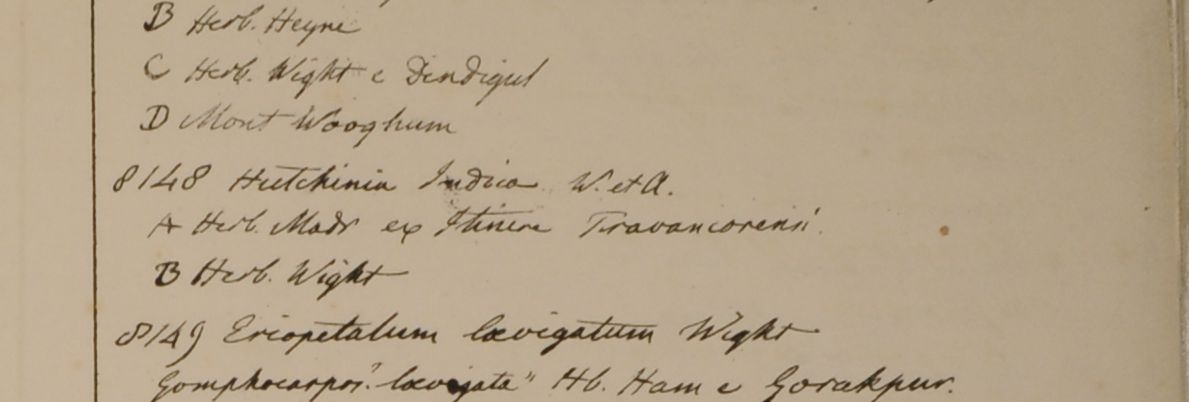 B Herb. Heyne
C Herb. Wight e Dindigul
D Mont Wooghum
8148 Hutchinia Indica W. et A.
A Herb. Madr ex Itinere Travancorensi.
B Herb. Wight
8149 Eriopetalum lævigatum Wight
Gomphocarpos? lævigata" Hb. Ham e Gorakpur.